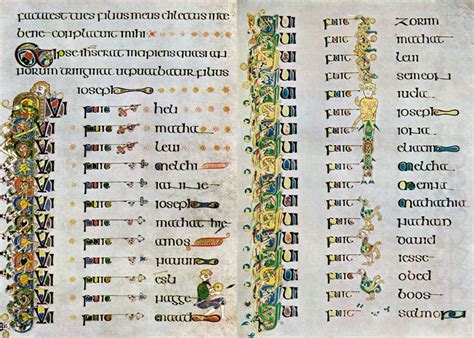 facta est tu es filius meus dilectus in te
bene conplacuit mihi
Et ipse ihs erat incipiens quasi an
norum triginta ut putabatur filius
ioseph
Qui fuit heli
Qui fuit matha
Qui fuit levi
Qui fuit melchi
Qui fuit
Qui fuit ioseph
Qui fuit mathathie
Qui fuit amos
Qui fuit nauum
Qui fuit esli
Qui fuit nagge
Qui fuit maath
Qui fuit zorim
Qui fuit mathat
Qui fuit levi
Qui fuit semeon
Qui fuit iuda
Qui fuit ioseph
Qui fuit iona
Qui fuit eliacim
Qui fuit melcha
Qui fuit menna
Qui fuit mathathia
Qui fuit nathan
Qui fuit david
Qui fuit iesse
Qui fuit obed
Qui fuit boos
Qui fuit salmon